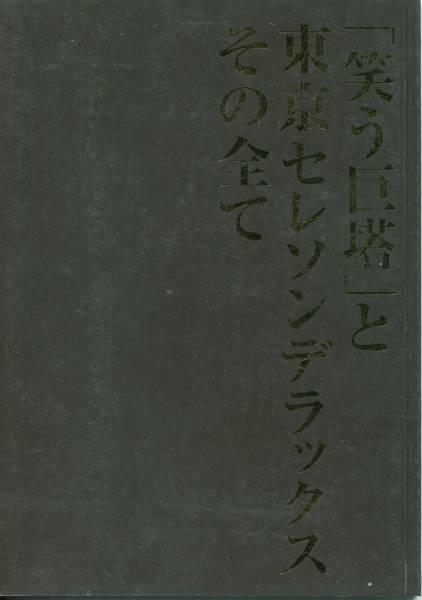 「笑う巨塔」と
東京セレソンデラックス
その全て